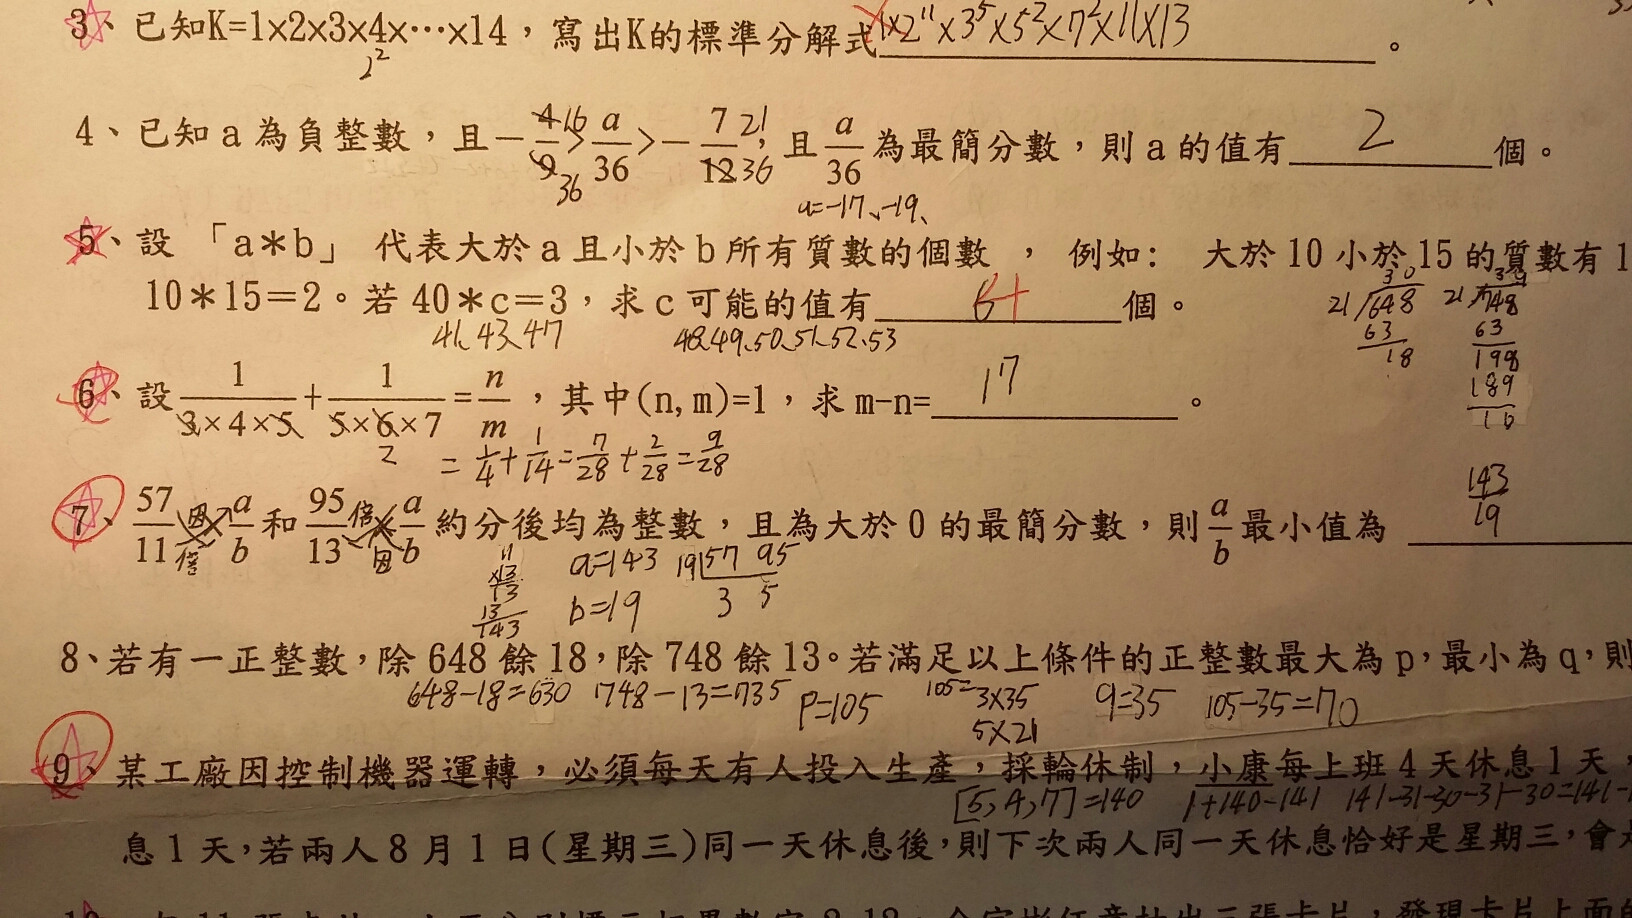 3、已知K=1×2×3×4×⋯×14，寫出K的標準分解式 1×2¹¹×3⁵×5²×7²×11×13。
2²
4、已知a為負整數，且－4/9＞a/36＞－7/12，且a/36為最簡分數，則a的值有 2 個。
16 36 21 36
a=-17、-19、
5、設「a＊b」代表大於a且小於b所有質數的個數，例如：大於10小於15的質數有1
10＊15＝2。若40＊c＝3，求c可能的值有 6 個。
41、43、47 48、49、50、51、52、53
30
21/648
63
18
21/748
63
198
189
6、設1/(3×4×5)+1/(5×6×7)=n/m，其中(n,m)=1，求m-n= 17 。
2
=1/4+1/14=7/28+2/28=9/28
7、57/11 a/b和95/13 a/b約分後均為整數，且為大於0的最簡分數，則a/b最小值為 143/19
因 倍 倍 因
a=143 19|57 95
b=19 3 5
143
8、若有一正整數，除648餘18，除748餘13。若滿足以上條件的正整數最大為p，最小為q，則
648-18=630 748-13=735 P=105 105=3×35 q=35 105-35=70
5×21
9、某工廠因控制機器運轉，必須每天有人投入生產，採輪休制，小康每上班4天休息1天，
[5,4,7]=140 1+140=141 141-31-30-31-30=141-
息1天，若兩人8月1日(星期三)同一天休息後，則下次兩人同一天休息恰好是星期三，會